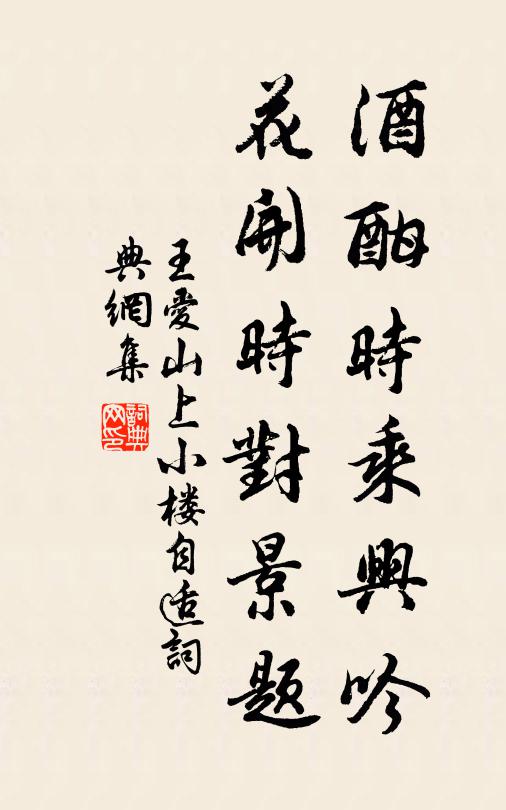 酒酣時乘興吟
花開時對景題
王愛山上小楼自适詞
典網集
詞典
网印